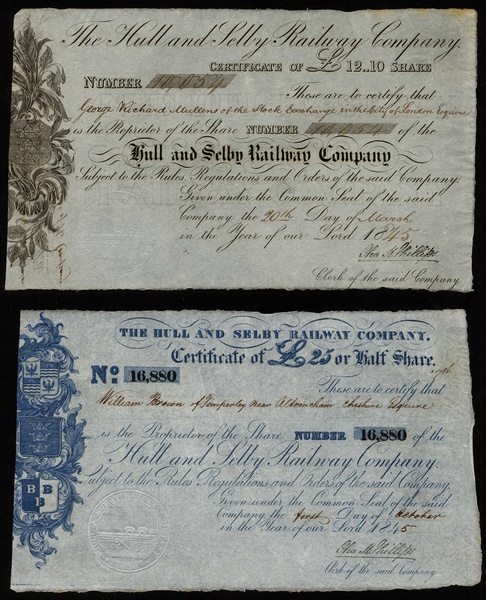 The Hull and Selby Railway Company.
Certificate of £ 12..10 Share
Number 14,054
These are to certify that
George Richard Mullens of the Stock Exchange in the City of London Esquire
is the Proprietor of the Share Number 14,054 of the
Hull and Selby Railway Company
Subject to the Rules, Regulations and Orders of the said Company.
Given under the Common Seal of the said
Company the 20th Day of March
in the Year of our Lord 1845
Cha. H. Phillips
Clerk of the said Company.
THE HULL AND SELBY RAILWAY COMPANY.
Certificate of £25 or Half Share.
No. 16,880
These are to certify that
William Brown of Timperley near Altrincham Cheshire Esquire
is the Proprietor of the Share NUMBER 16,880 of the
Hull and Selby Railway Company.
Subject to the Rules Regulations and Orders of the said Company.
Given under the Common Seal of the said
Company the first Day of October
in the Year of our Lord 1845
Cha. H. Phillips
Clerk of the said Company.
B B
B